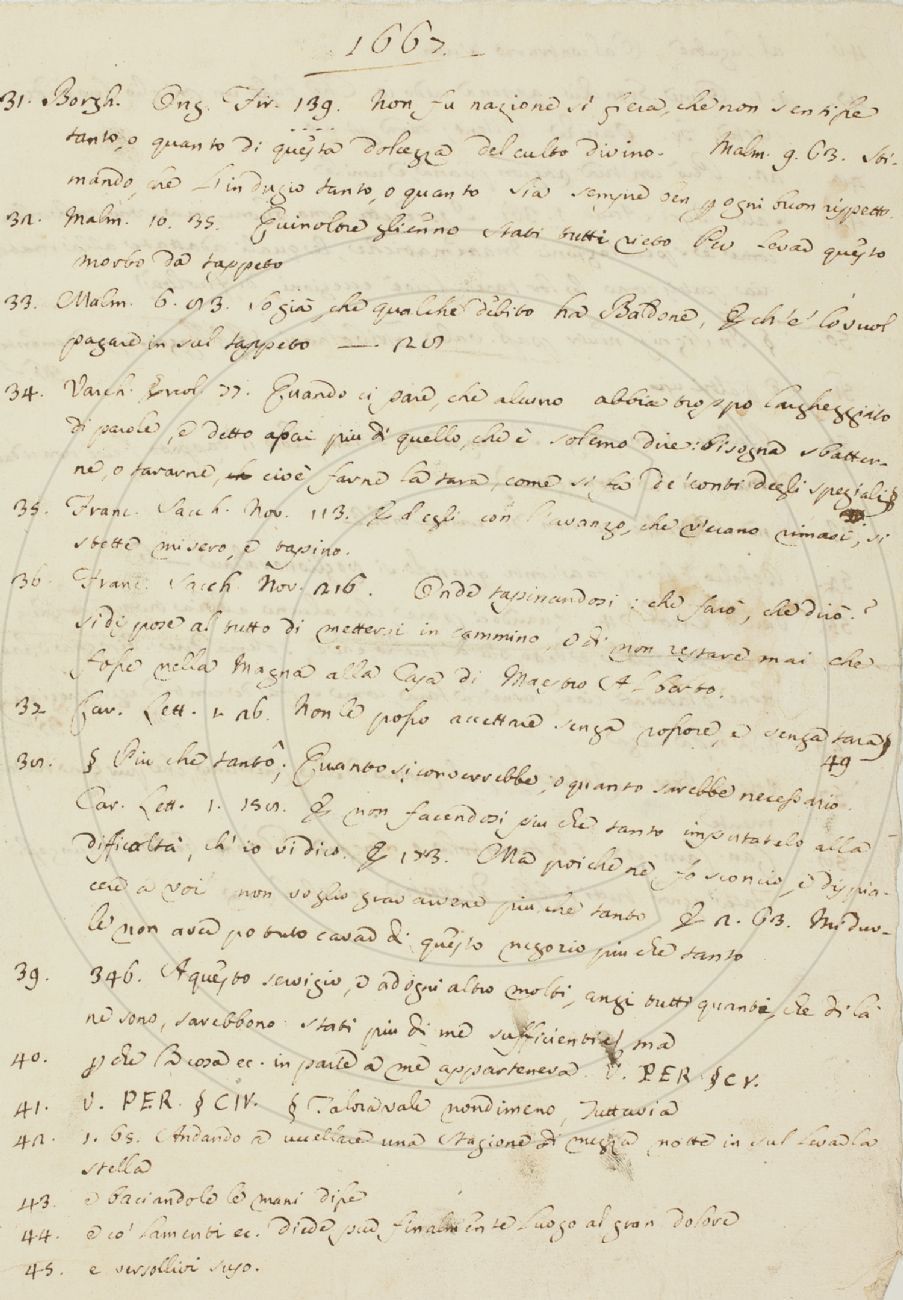 1667.
31. Borgh. Orig. Fir. 139. Non fu nazione sì fiera, che non sentisse
tanto, o quanto di questa dolcezza del culto divino. Malm. 9. 63. Sti-
mando, che l'indugio tanto, o quanto sia sempre ben p ogni buon rispetto.
32. Malm. 10. 35. Quivoltre glienno stati tutti rieto Per levar questo
morbo da tappeto
33. Malm. 6. 83. So già, che qualche debito ha Baldone, E ch'e' lo vuol
pagare in sul tappeto — . 28
34. Varch. Ercol. 77. Quando ci pare, che alcuno abbia troppo largheggiato
di parole, e detto assai più di quello, che è solemo dire: bisogna sbatter-
ne, o tararne, cioè farne la tara, come si fa de' conti degli speziali §
35. Franc. Sacch. Nov. 113. Ed egli con l'avanzo, che v'erano rimasi, si
stette misero, e tapino.
36. Franc. Sacch. Nov. 216. Onde tapinandosi: che farò, che dirò?
si dispose al tutto di mettersi in cammino, e di non restare mai che
fosse nella Magna alla Casa di Maestro Alberto.
37 Car. Lett. 1. 26. Non le posso accettare senza rossore, e senza tara §
49
38. § Più che tanto; Quanto si converrebbe, o quanto sarebbe necessario.
Car. Lett. 1. 158. E non facendosi più che tanto imputatelo alla
difficoltà, ch'io vi dico. E 173. Ma poichè ne fo sconcio, e dispia-
cere a voi non voglio gravarvene più che tanto E 2. 63. Mi duo-
le non aver potuto cavar di questo negozio più che tanto
39. 346. A questo servigio, e ad ogni altro molti, anzi tutti quanti, che di là
ne sono, sarebbono stati più di me sufficienti, ma
40. p che la cosa ec. in parte a me apparteneva. V. PER § CV.
41. V. PER. § CIV. § Talora vale nondimeno, Tuttavia
42. 1. 65. Andando a uccellare una stagione di mezza notte in sul levar la
stella
43. e baciandole le mani disse
44. e co' lamenti ec. diede pur finalmente luogo al gran dolore
45. e versollivi suso.